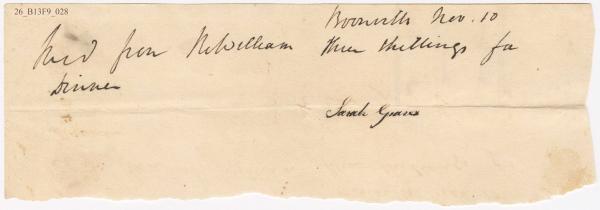 26_B13F9_028
Boonville Nov. 10
Rec'd from McWilliam three shillings for
Dinner
Sarah